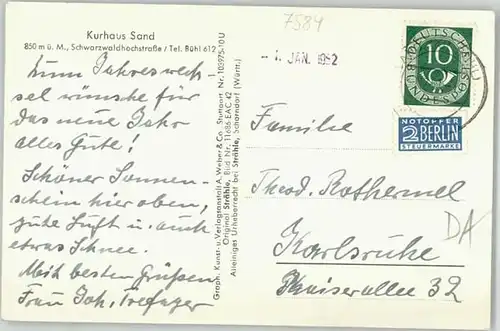 7584
Kurhaus Sand
850 m ü. M., Schwarzwaldhochstraße / Tel. Bühl 612
Zum Jahreswech-
sel wünsche für
das neue Jahr
alles Gute!
Schöner Sonnen-
schein hier oben,
gute Luft u. auch
etwas Schnee.
Mit besten Grüßen
Frau Joh.
Graph. Kunst- u. Verlagsanstalt A. Weber & Co., Stuttgart Nr. 103975-10 U
Original Strähle, Bild Nr. 11686 EAC 42
Alleiniges Urheberrecht bei Strähle, Schorndorf (Württ.)
JAN. 1952
DEUTSCHE
BUNDESPOST
10
NOTOPFER
2 BERLIN
STEUERMARKE
Familie
Theod. Rothermel
DA
Karlsruhe
Kaiserallee 32